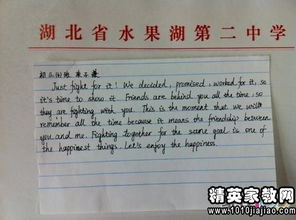 湖北省水果湖第二中学
Just fight for it! We decided, promised, worked for it, so
it's time to show it. Friends are behind you all the time, so
they are fighting with you. This is the moment that we will
remember all the time because it means the friendship between
you and me. Fighting together for the same goal is one of
the happiest things. Let's enjoy the happiness.
精英家教网
www.1010jiajiao.com